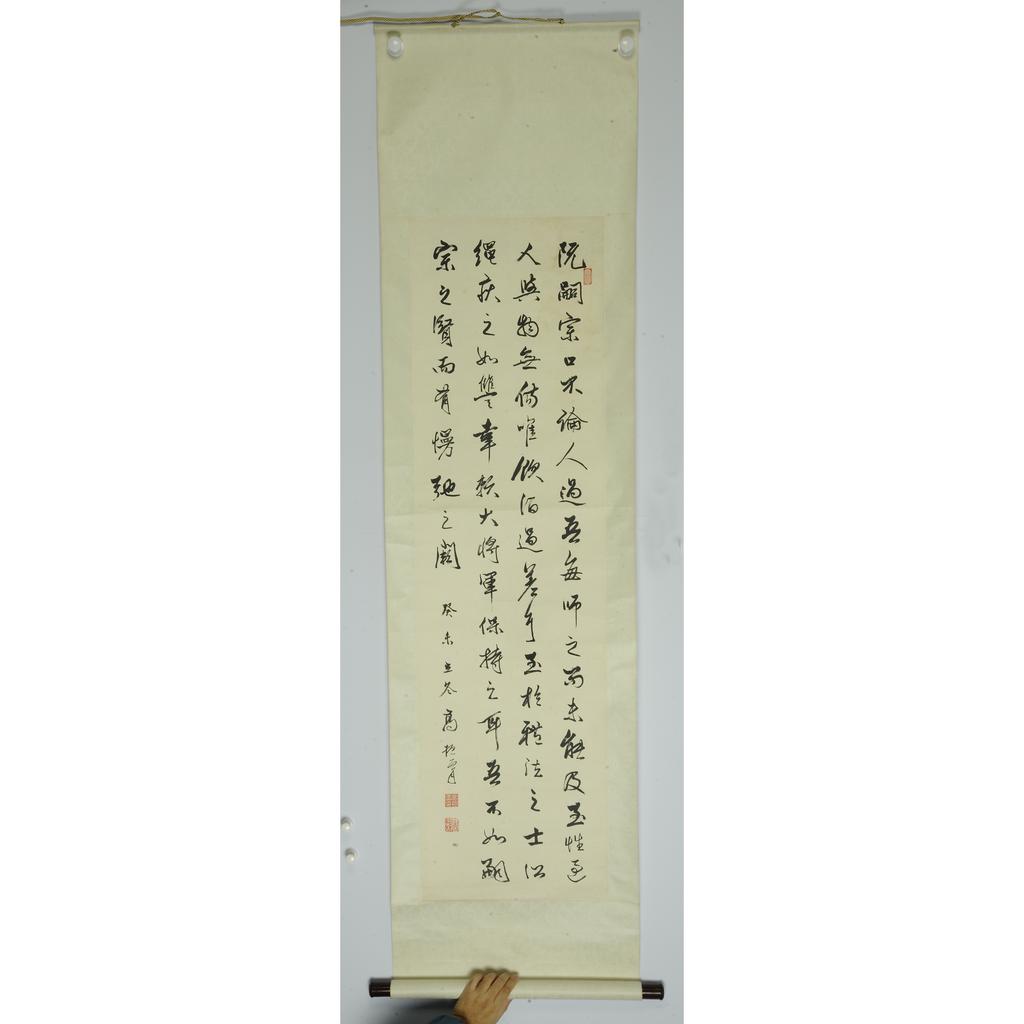 阮嗣宗口不論人過吾每師之而未能及至性過
人與物無傷唯飲酒過差耳至於禮法之士所
繩疾之如讎幸賴大將軍保持之耳吾不如嗣
宗之賢而有慢弛之闕 癸未立冬 高振霄